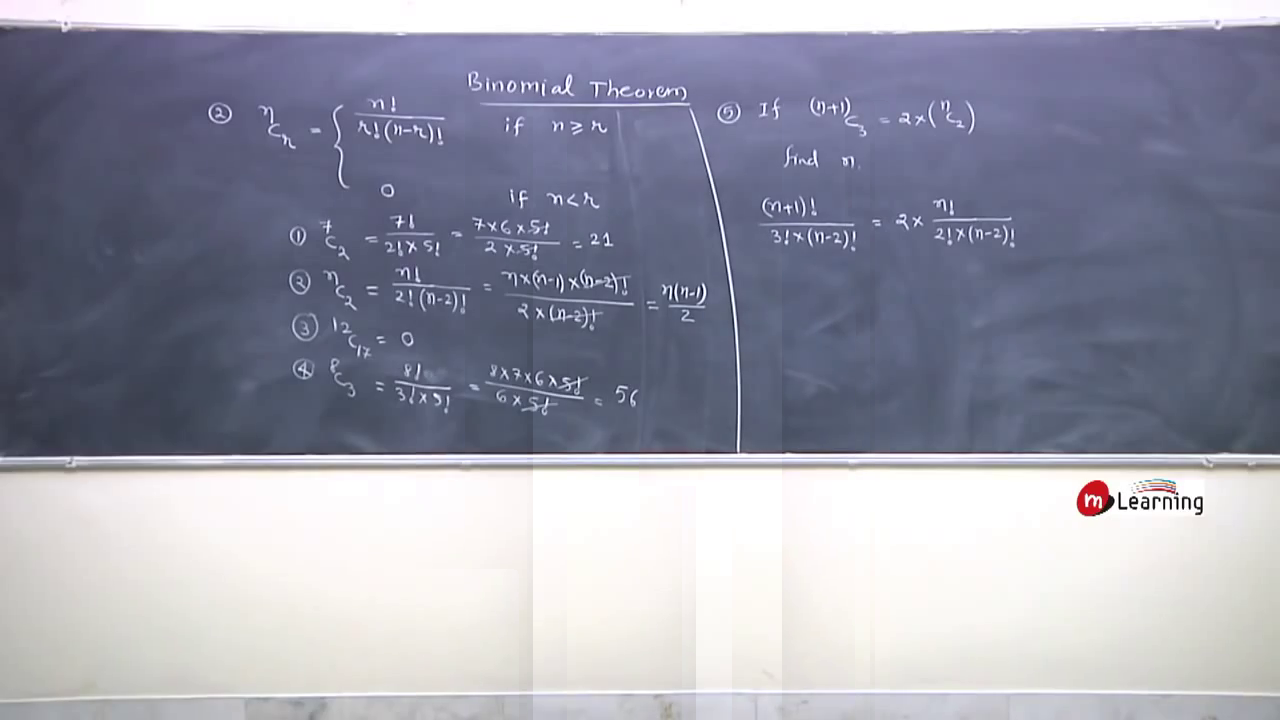 Binomial Theorem
② ⁿCᵣ = { n! / r!(n-r)! if n ≥ r
0 if n < r
① ⁷C₂ = 7! / 2! × 5! = 7 × 6 × 5! / 2 × 5! = 21
② ⁿC₂ = n! / 2! (n-2)! = n × (n-1) × (n-2)! / 2 × (n-2)! = n(n-1) / 2
③ ¹²C₁₇ = 0
④ ⁸C₃ = 8! / 3! × 5! = 8 × 7 × 6 × 5! / 6 × 5! = 56
⑤ If ⁽ⁿ⁺¹⁾C₃ = 2 × (ⁿC₂)
find n.
(n+1)! / 3! × (n-2)! = 2 × n! / 2! × (n-2)!
m Learning